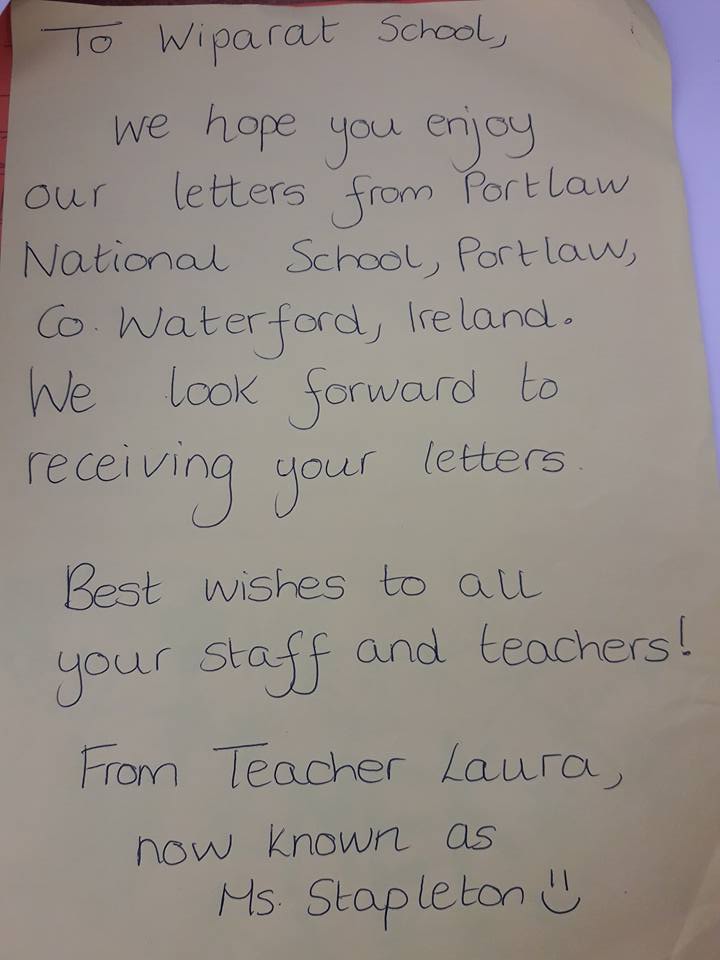 To Wiparat School,
We hope you enjoy
our letters from Portlaw
National School, Portlaw,
Co. Waterford, Ireland.
We look forward to
receiving your letters.
Best wishes to all
your staff and teachers!
From Teacher Laura,
now known as
Ms. Stapleton ಚ